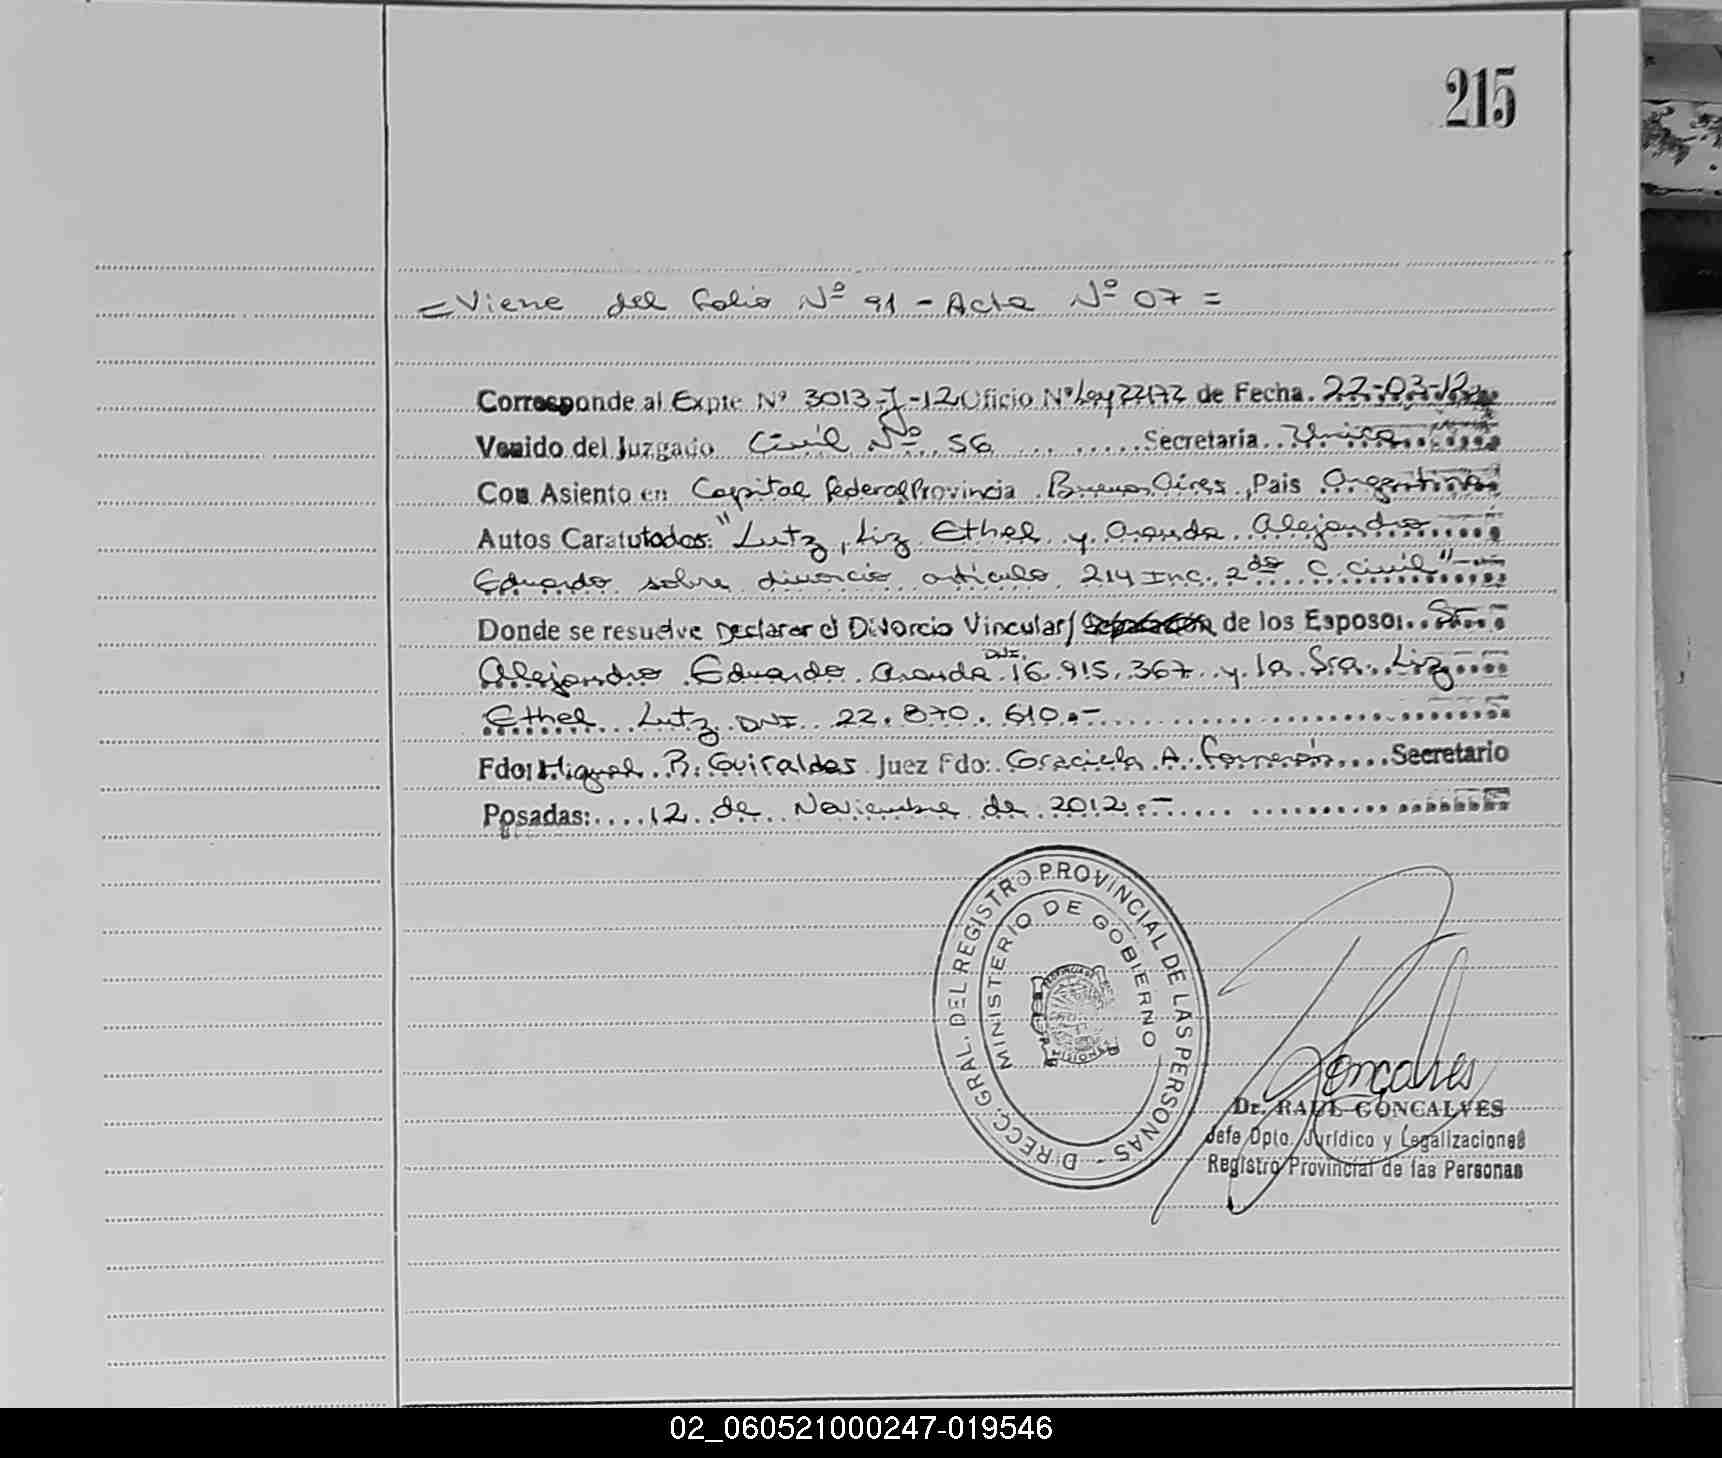 215
= Viene del folio Nº 91 - Acta Nº 07 =
Corresponde al Expte Nº 3013-J-12 Oficio Nº Ley 22172 de Fecha. 22-03-12
Venido del Juzgado Civil Nº 56 Secretaria Unica
Con Asiento en Capital Federal Provincia Buenos Aires, Pais Argentina
Autos Caratulados: "Lutz, Liz Ethel y Aranda Alejandro
Eduardo sobre divorcio artículo 214 Inc. 2do C. Civil"
Donde se resuelve Declarar el Divorcio Vincular/ Separación de los Esposos. Sr.
Alejandro Eduardo Aranda DNI. 16.915.367 y la Sra. Liz
Ethel Lutz DNI 22.870.610.-
Fdo: Miguel R. Guiraldes Juez Fdo: Graciela A. Secretario
Posadas: 12 de Noviembre de 2012.-
DIRECC. GRAL. DEL REGISTRO PROVINCIAL DE LAS PERSONAS -
MINISTERIO DE GOBIERNO
MISIONES
Gonçalves
Dr. RAUL GONCALVES
Jefe Dpto. Jurídico y Legalizaciones
Registro Provincial de las Personas
02_060521000247-019546